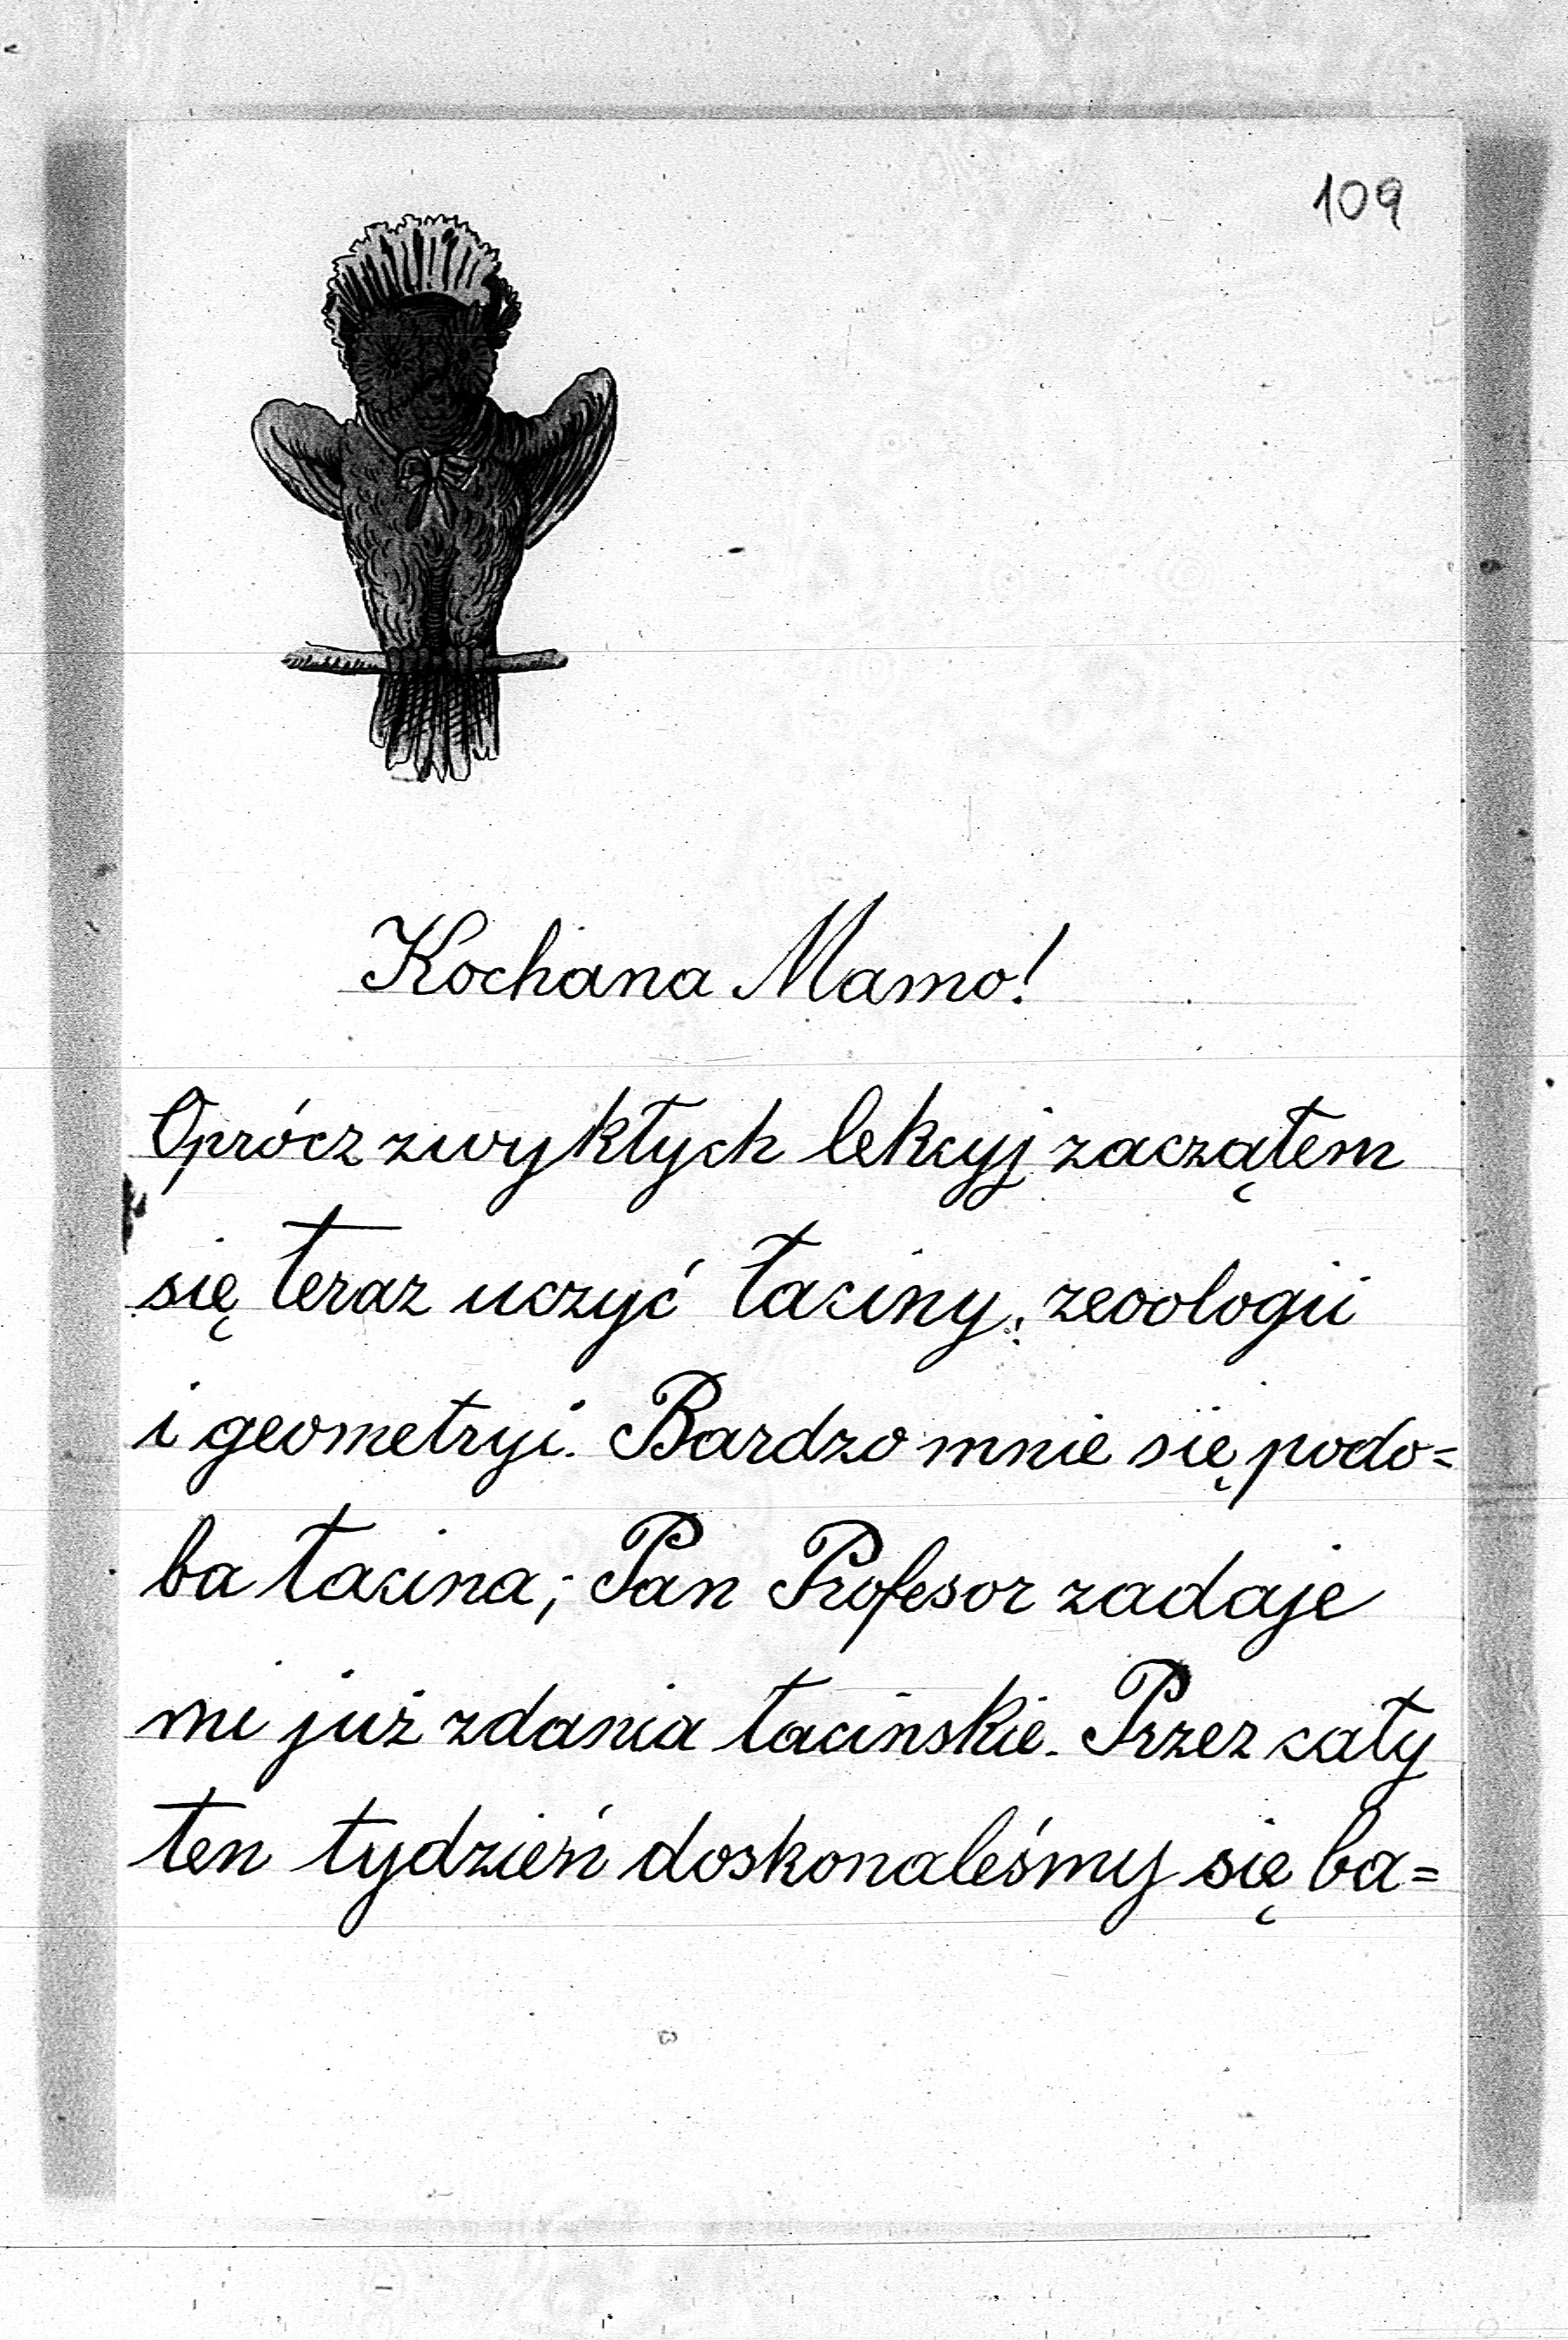 109
Kochana Mamo!
Oprócz zwykłych lekcyj zacząłem
się teraz uczyć łaciny, zeoologii
i geometryi. Bardzo mnie się podo=
ba łacina; Pan Profesor zadaje
mi już zdania łacinskie. Przez cały
ten tydzień doskonaleśmy się ba=